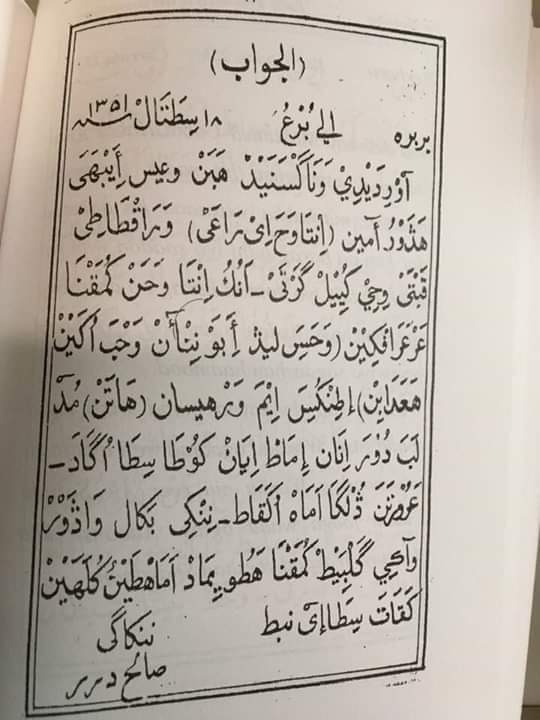 (الجواب)
بربره الي بُرْعُ ١٨ سِطَتَالْ سنه ١٣٥١
آوْرِدَيْدِيْ وَنَاگْسَنَيْدْ هَبَنْ وعيس أَيْبَهَى
هَدَوْرُ آمين (اِنْتَا وَحَ اِىْ رَاعَىْ) وَرَاقْطَاطِىْ
قَبْتَىْ وِحِيْ كَيِيْلْ گَرْتَىْ - آنُكُ اِنْتَا وَحَنْ كُمَقْنَا
عَرْعَرَافَكِيْن (وَحَسِ لَيْدْ أَبَوْ نِنْأَنْ وَحْبَ اُكَيْنْ
هَعَدَايْن) اِطِنْكَسِ اِيْمَ وَرْهيسان (هَاتَنْ) مُدَّ
لَبَ دُوْرَ اِنَان اِمَاطْ اِيَانْ كَوْطَا سِطَا اُگَادَ -
عَرُوْرْتَنَ دُلْگَا اَمَاهْ اُلَقَاطْ - نِنْكِى بَكَال وَادَوْرْ
وآكِي گَلْبِيْطْ كُمَقْنَا هَطُو يِمَادْ اَمَاهَطَيْنْ كُلَهَيْن
كَقَاتَ سِطَا اِىْ نبط
ننكاگى
صالح